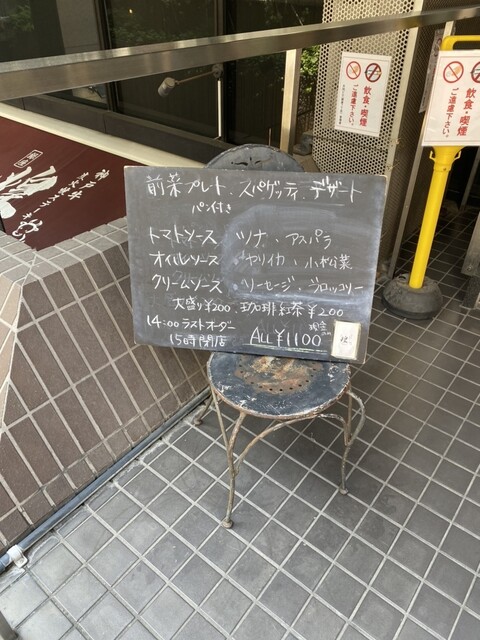 前菜プレート、スパゲッティ、デザート
パン付き
トマトソース ツナ、アスパラ
オイルソース ヤリイカ、小松菜
クリームソース ソーセージ、ブロッコリー
大盛り¥200、珈琲紅茶¥200
14:00ラストオーダー
15時閉店
ALL ¥1100
現金
のみ
飲食・喫煙
ご遠慮下さい。
飲食・喫煙
ご遠慮下さい。